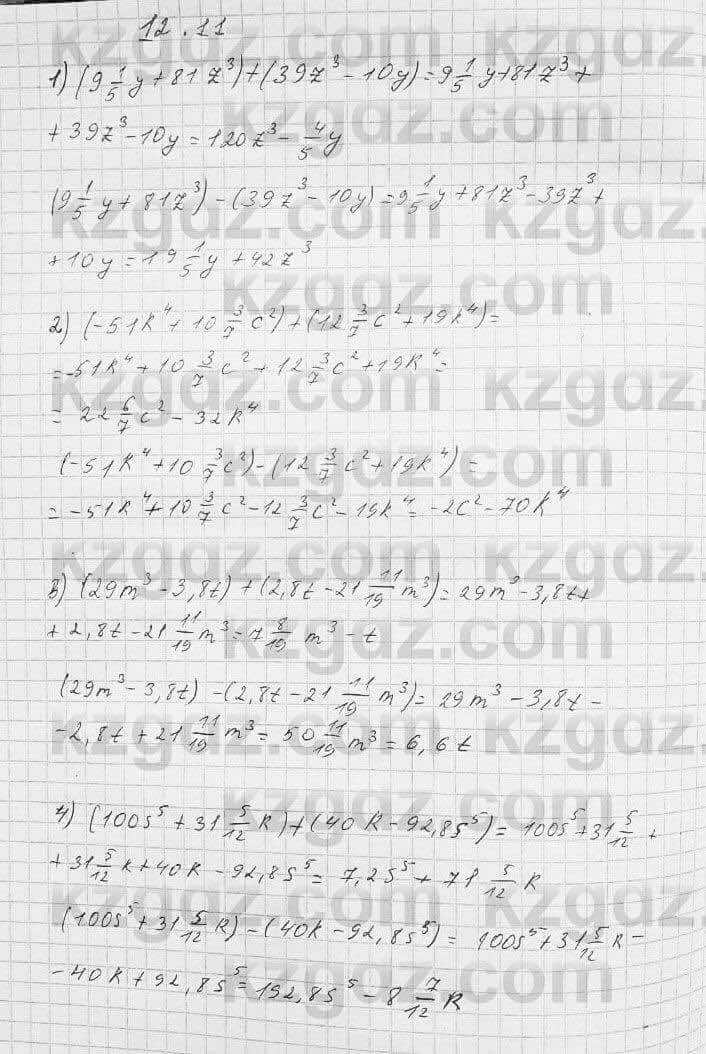 12.11
1) (9 1/5 y + 81z³) + (39z³ - 10y) = 9 1/5 y + 81z³ +
+ 39z³ - 10y = 120z³ - 4/5 y
(9 1/5 y + 81z³) - (39z³ - 10y) = 9 1/5 y + 81z³ - 39z³ +
+ 10y = 19 1/5 y + 42z³
2) (-51k⁴ + 10 3/7 c²) + (12 3/7 c² + 19k⁴) =
= -51k⁴ + 10 3/7 c² + 12 3/7 c² + 19k⁴ =
= 22 6/7 c² - 32k⁴
(-51k⁴ + 10 3/7 c²) - (12 3/7 c² + 19k⁴) =
= -51k⁴ + 10 3/7 c² - 12 3/7 c² - 19k⁴ = -2c² - 70k⁴
3) (29m³ - 3,8t) + (2,8t - 21 11/19 m³) = 29m³ - 3,8t +
+ 2,8t - 21 11/19 m³ = 7 8/19 m³ - t
(29m³ - 3,8t) - (2,8t - 21 11/19 m³) = 29m³ - 3,8t -
- 2,8t + 21 11/19 m³ = 50 11/19 m³ = 6,6t
4) (100s⁵ + 31 5/12 k) + (40k - 92,8s⁵) = 100s⁵ + 31 5/12 +
+ 31 5/12 k + 40k - 92,8s⁵ = 7,2s⁵ + 71 5/12 k
(100s⁵ + 31 5/12 k) - (40k - 92,8s⁵) = 100s⁵ + 31 5/12 k -
- 40k + 92,8s⁵ = 192,8s⁵ - 8 7/12 k
kzgdz.com